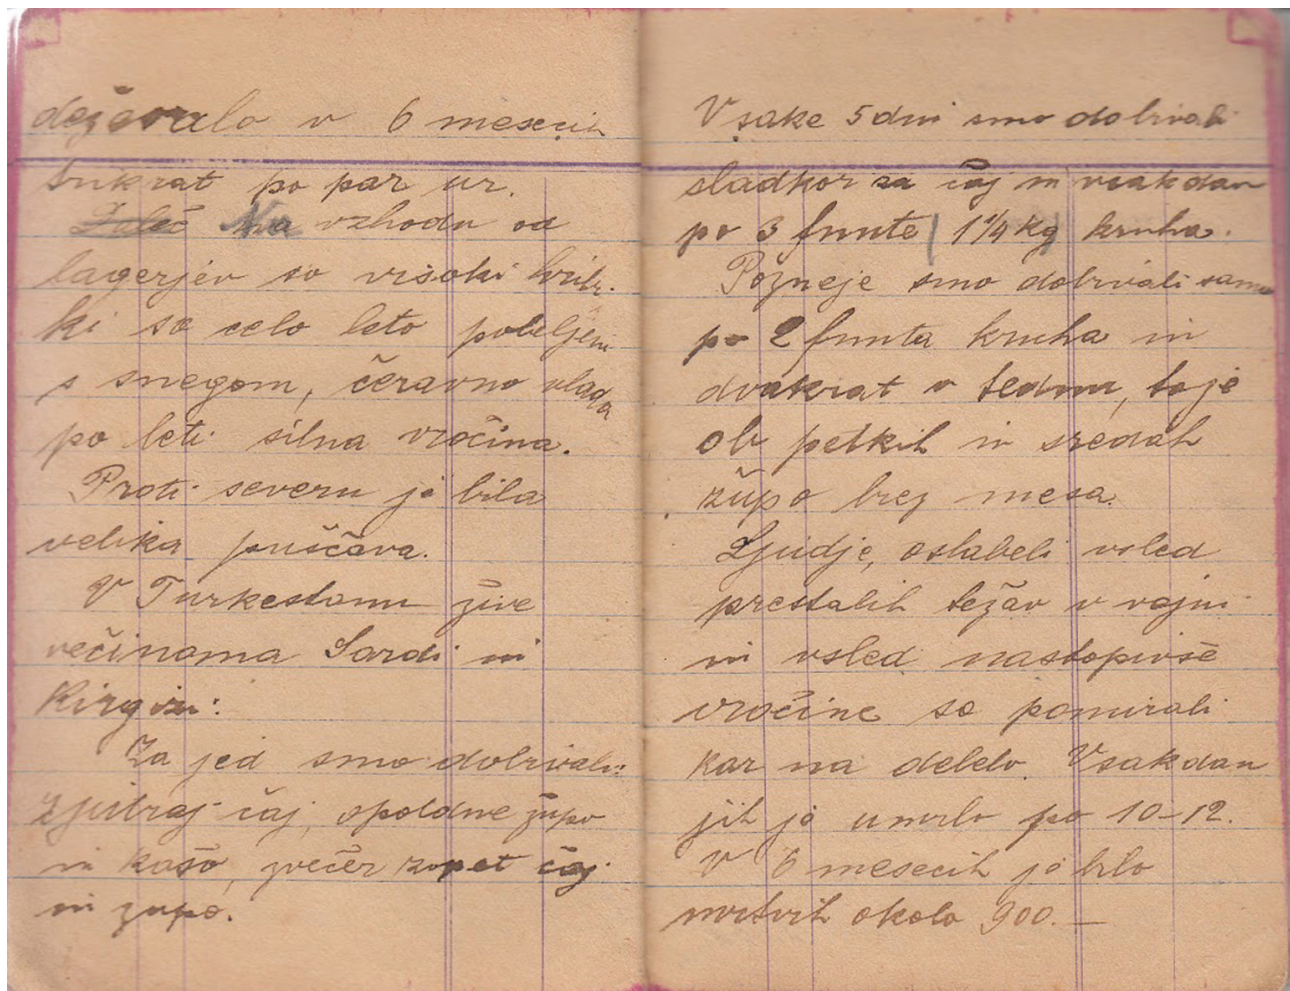 deževalo v 6 mesecih
trikrat po par ur.
Daleč Na vzhodu od
lagerjev so visoki hribi.
ki so celo leto pobeljeni
s snegom, čeravno vlada
po leti silna vročina.
Proti severu je bila
velika puščava.
V Turkestanu žive
večinoma Sardi in
Kirgizi.
Za jed smo dobivali:
zjutraj čaj, opoldne župo
in kašo, zvečer zopet čaj
in župo.
Vsake 5 dni smo dobivali
sladkor za čaj in vsakdan
po 3 funte (1 1/4 kg) kruha.
Pozneje smo dobivali samo
po 2 funta kruha in
dvakrat v tednu, to je
ob petkih in sredah
župo brez mesa.
Ljudje, oslabeli vsled
prestalih težav v vojni
in vsled nastopivše
vročine so pomirali
kar na debelo. Vsakdan
jih je umrlo po 10-12.
V 6 mesecih je bilo
mrtvih okolo 900.—